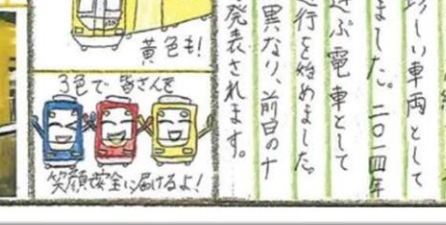 珍しい車両として
ました。二〇一四年
運ぶ電車として
運行を始めました。
異なり、前日のナ
発表されます。
黄色も!
3色で皆さんを
笑顔安全に届けるよ!